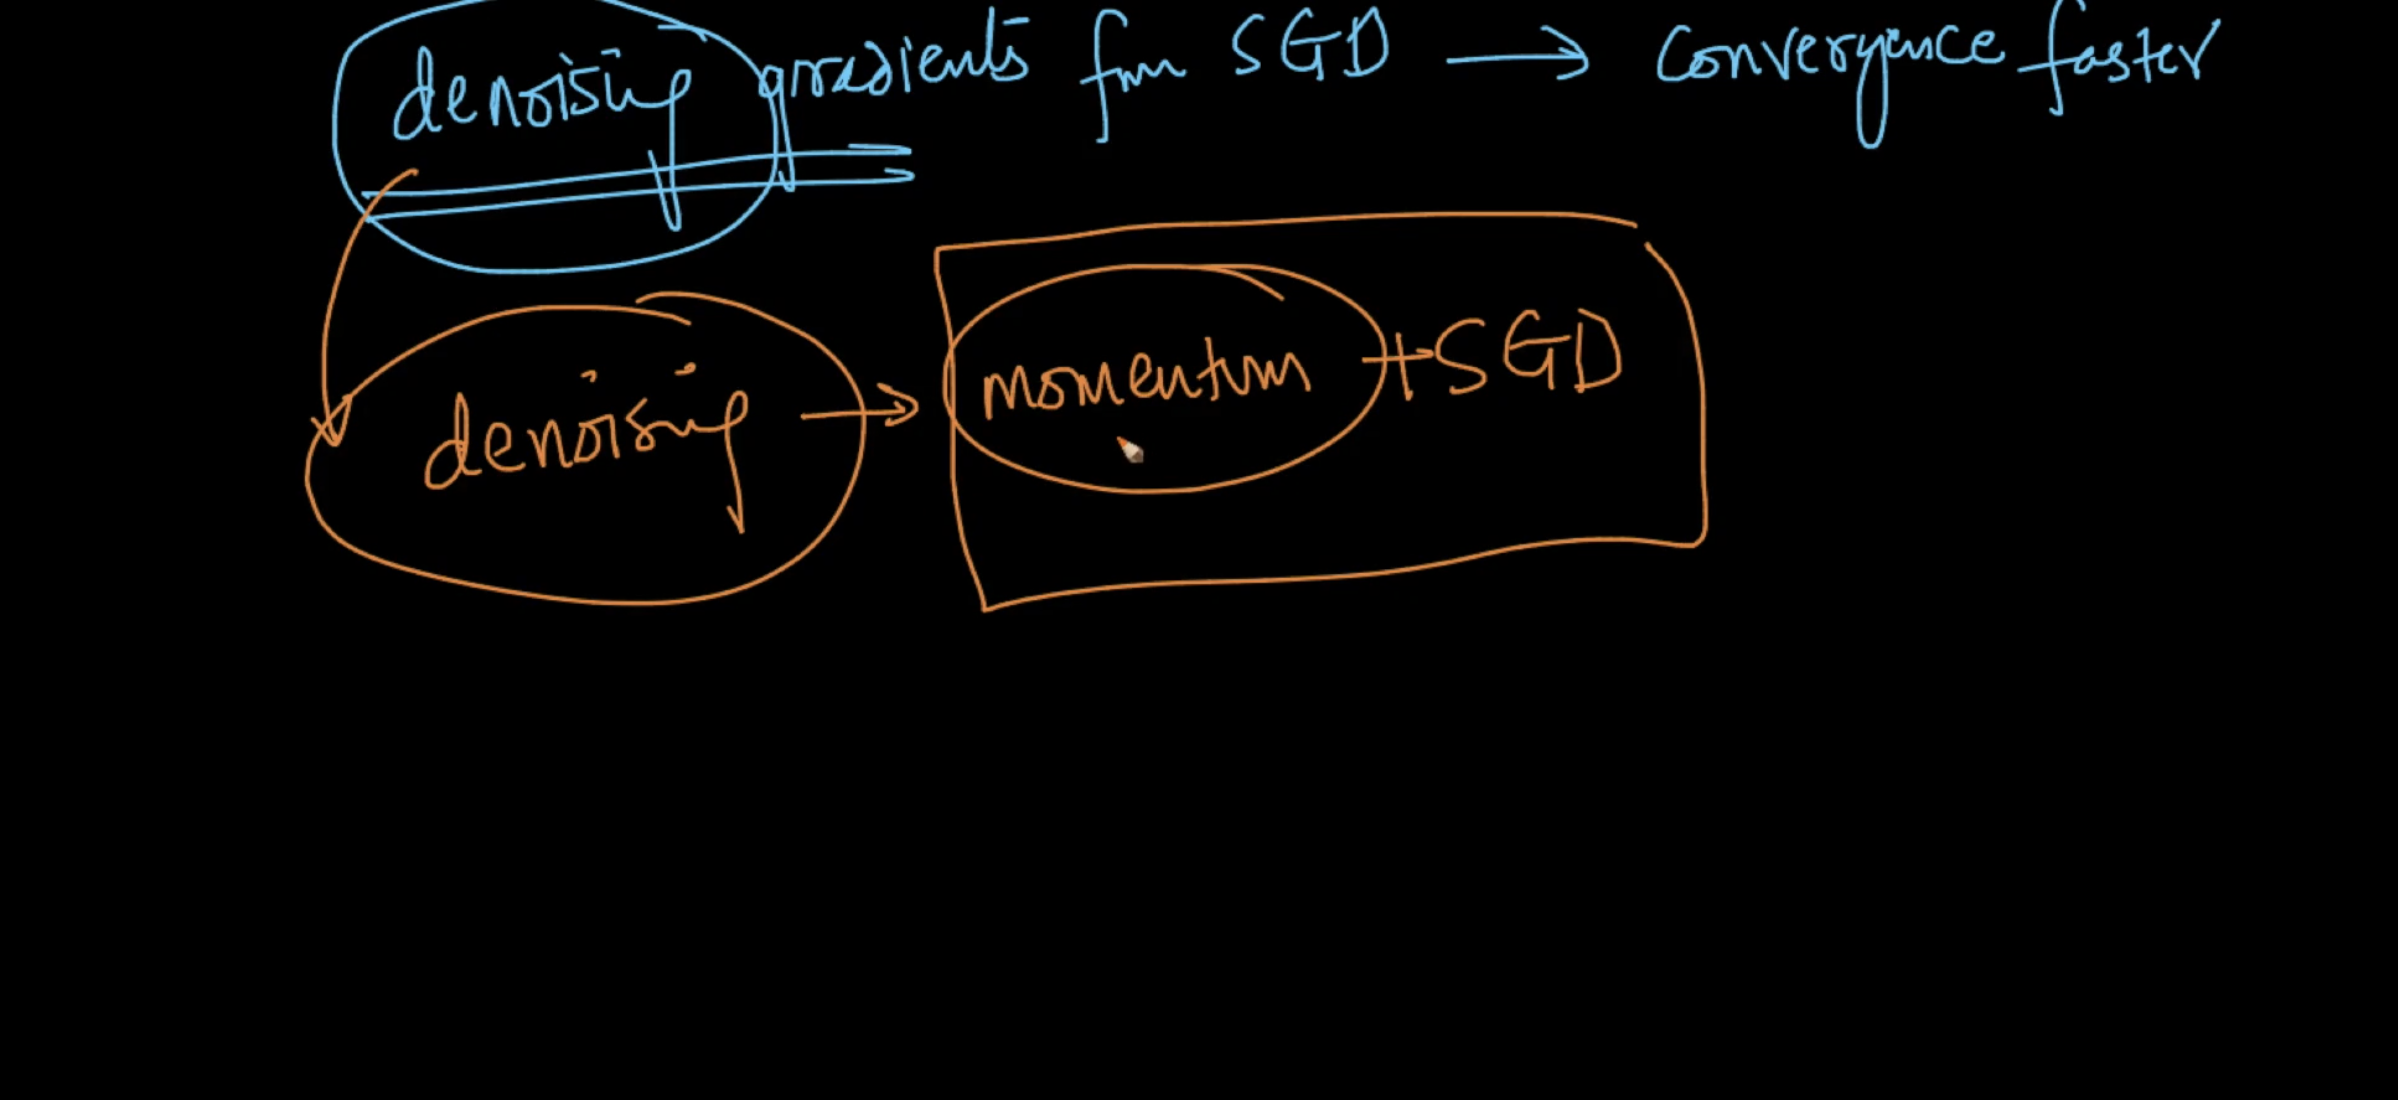 denoising gradients from SGD → Convergence faster
denoising → momentum + SGD